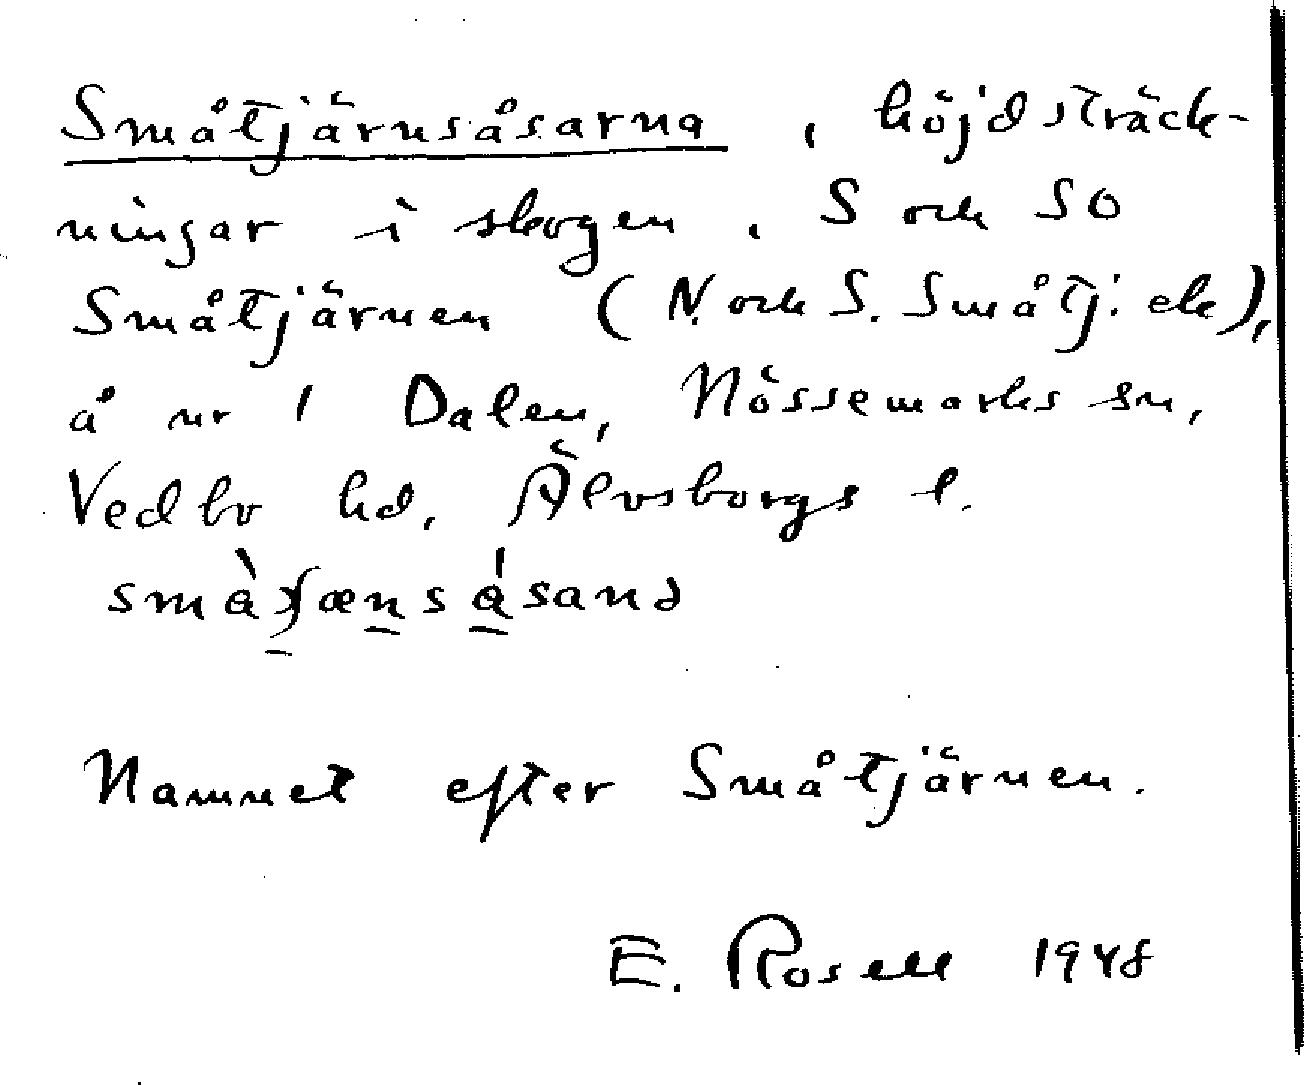 Småtjärnsåsarna, höjdsträck-
ningar i skogen, S och SO
Småtjärnen (N. och S. Småtj: ek),
å nr 1 Dalen, Nössemarks sn,
Vedbo hd, Älvsborgs l.
Namnet efter Småtjärnen.
E. Rosell 1948